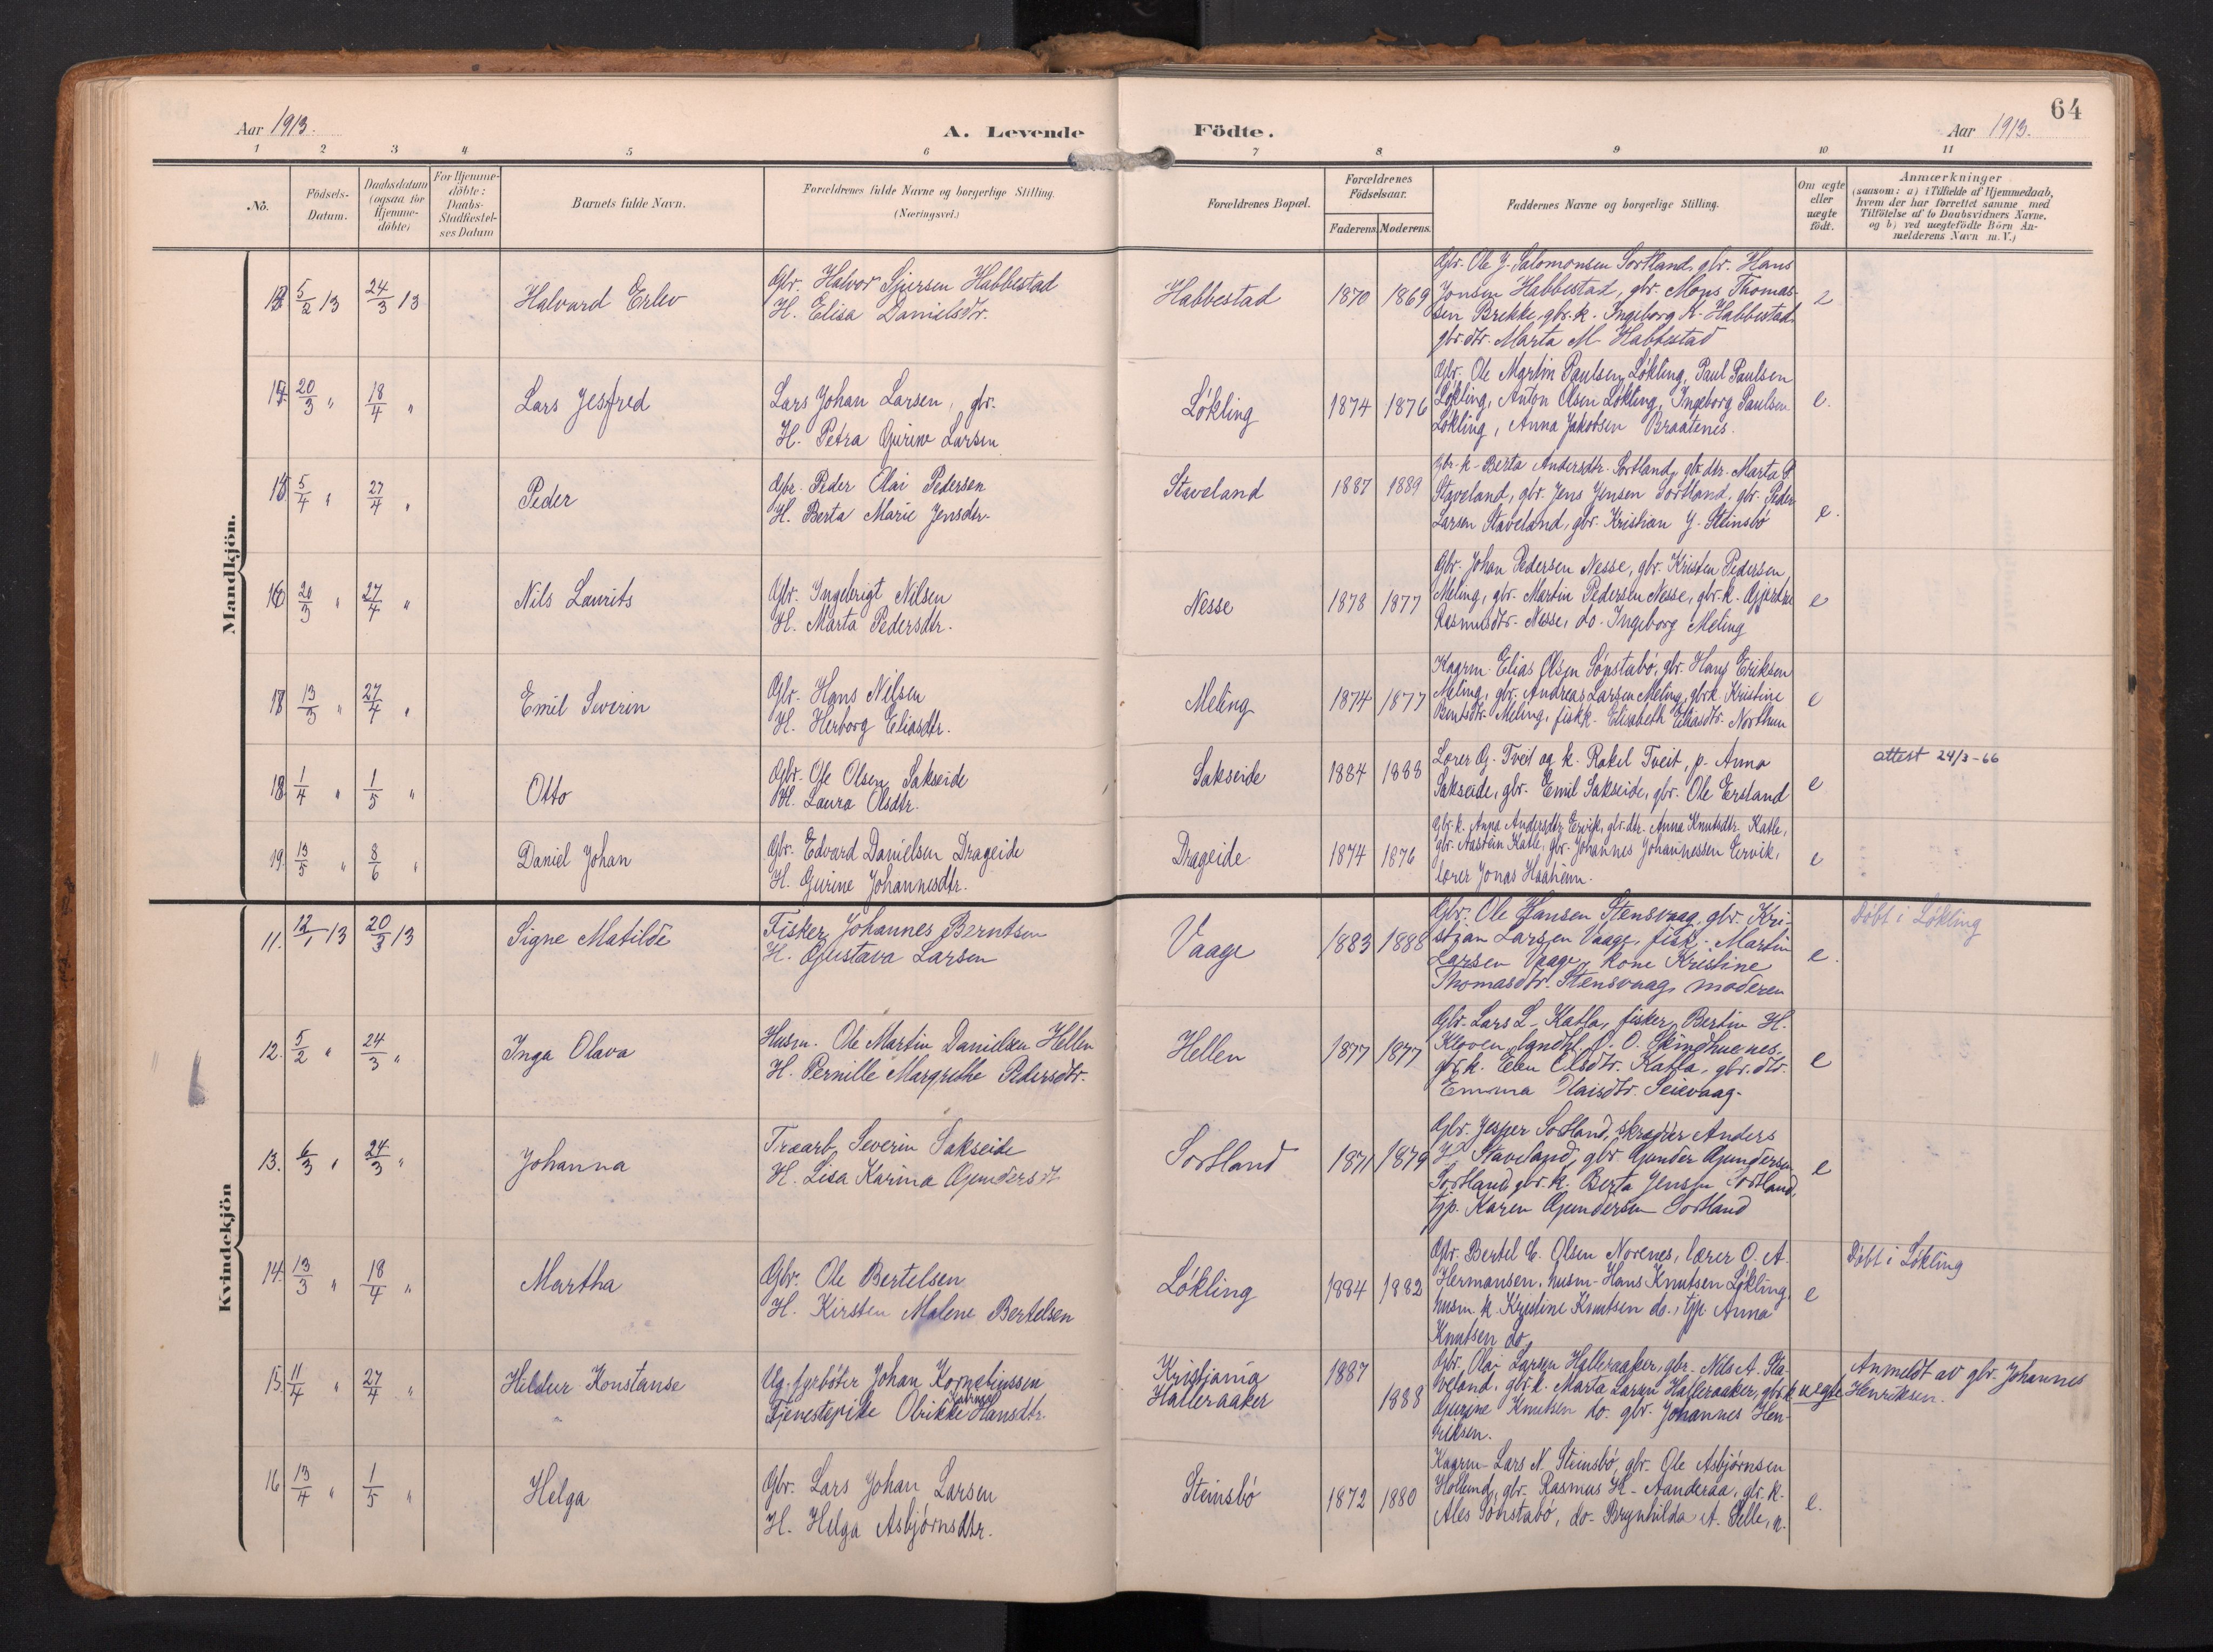 64
Aar 1913.
A. Levende Födte.
Aar 1913.
1 2 3 4 5 6 7 8 9 10 11
No.
Födsels-
Datum.
Daabsdatum
(ogsaa for
Hjemme-
döbte)
For Hjemme-
döbte:
Daabs-
Stadfæstel-
ses Datum
Barnets fulde Navn.
Forældrenes fulde Navne og borgerlige Stilling.
(Næringsvei.)
Forældrenes Bopæl.
Forældrenes
Födselsaar.
Faderens. Moderens.
Faddernes Navne og borgerlige Stilling.
Om ægte
eller
uægte
födt.
Anmærkninger
(saasom: a) i Tilfælde af Hjemmedaab,
hvem der har forrettet samme med
Tilföielse af to Daabsvidners Navne,
og b) ved uægtefödte Börn An-
melderens Navn m. V.)
Mandkjön.
13 5/2 13 24/3 13
Halvard Erlev
Gbr. Halvor Sjursen Habbestad
H. Elisa Danielsdtr.
Habbestad
1870 1869
Gbr. Ole J. Salomonsen Sortland, gbr. Hans
Jonsen Habbestad, gbr. Mons Thomas-
sen Brekke, gbr. k. Ingeborg K. Habbestad
gbr. dtr. Marta M. Habbestad
e
14 20/3 " 18/4 "
Lars Jesfred
Lars Johan Larsen, gbr.
H. Petra Gurine Larsen
Løkling
1874 1876
Gbr. Ole Martin Paulsen Løkling, Paul Paulsen
Løkling, Anton Olsen Løkling, Ingeborg Paulsen
Løkling, Anna Jakobsen Braatenes.
e.
15 5/4 " 27/4 "
Peder
Gbr. Peder Olai Pedersen
H. Berta Marie Jensdtr.
Staveland
1887 1889
Gbr. k. Berta Andersdtr. Sortland, gbr. dtr. Marta P.
Staveland, gbr. Jens Jensen Sortland, gbr. Peder
Larsen Staveland, gbr. Kristian J. Steinsbø
e.
16 20/3 " 27/4 "
Nils Laurits
Gbr. Ingebrigt Nilsen
H. Marta Pedersdtr.
Nesse
1878 1877
Gbr. Johan Pedersen Nesse, gbr. Kristen Pedersen
Meling, gbr. Martin Pedersen Nesse, gbr. k. Gjertine
Rasmusdtr. Nesse, do. Ingeborg Meling
e
17 13/3 " 27/4 "
Emil Severin
Gbr. Hans Nilsen
H. Herborg Eliasdtr.
Meling
1874 1877
Kaarm. Elias Olsen Sønstabø, gbr. Hans Eriksen
Meling, gbr. Andreas Larsen Meling, gbr. k. Kristine
Berntsdtr. Meling, fisk. k. Elisabeth Eliasdtr. Northun
e
18 1/4 " 1/5 "
Otto
Gbr. Ole Olsen Sakseide
H. Laura Olsdtr.
Sakseide
1884 1888
Lærer G. Tveit og k. Rakel Tveit, p. Anna
Sakseide, gbr. Emil Sakseide, gbr. Ole Ersland
e
attest 24/3-66
19. 13/5 " 8/6 "
Daniel Johan
Gbr. Edvard Danielsen Drageide
H. Gurine Johannesdtr.
Drageide
1874 1876
Gbr. k. Anna Andersdtr. Eervik, gbr. dtr. Anna Knutsdtr. Katle,
gbr. Aastein Katle, gbr. Johannes Johannessen Eervik,
lærer Jonas Haaheim.
e
Kvindekjön
11. 12/1 13 20/3 13
Signe Matilde
Fisker Johannes Berntsen
H. Gustava Larsen
Vaage
1883 1888
Gbr. Ole Hansen Stensvaag, gbr. Kri-
stian Larsen Vaage, fisk. Martin
Larsen Vaage, kone Kristine
Thomasdtr. Stensvaag, moderen
e.
Døbt i Løkling
12. 5/2 " 24/3 "
Inga Olava
Husm. Ole Martin Danielsen Hellen
H. Pernille Margrethe Pedersdtr.
Hellen
1877 1877
Gbr. Lars L. Katla, fisker Bertin H.
Kloven, landhl. O. O. Skindhuenes,
gbr. k. Elen Olsdtr. Katla, gbr. dtr.
Emma Olaisdtr. Seievaag.
e
13. 6/3 " 24/3 "
Johanna
Træarb. Severin Sakseide
H. Lisa Karina Gundersdt
Sortland
1871 1879
Gbr. Jesper Sortland, skræder Anders
H. Staveland, gbr. Gunder Gundersen
Sortland, gbr. k. Berta Jensen Sortland,
tjp. Karen Gundersen Sortland
e
14. 13/3 " 18/4 "
Martha
Gbr. Ole Bertelsen
H. Kirsten Malene Bertelsen
Løkling
1884 1882
Gbr. Bertel E. Olsen Norenes, lærer O. A.
Hermansen, husm. Hans Knutsen Løkling
husm. k. Kristine Knutsen do., tjp. Anna
Knutsen do.
e
Døbt i Løkling
15. 11/4 " 27/4 "
Hildur Konstanse
Ug. fyrbøter Johan Korneliussen
Tjenestepike Olrikke Katrine Hansdtr.
Kristiania
Halleraaker
1887
1888
Gbr. Olai Larsen Halleraaker, gbr. Nils A. Sta-
veland, gbr. k. Marta Larsen Halleraaker, gbr. k
Gurine Knutsen do. gbr. Johannes Hen-
riksen.
uegte
Anmeldt av gbr. Johannes
Henriksen.
16 13/4 " 1/5 "
Helga
Gbr. Lars Johan Larsen
H. Helga Asbjørnsdtr.
Steinsbø
1872 1880
Kaarm. Lars N. Steinsbø, gbr. Ole Asbjørnsen
Hollund, gbr. Rasmus H. Aanderaa, gbr. k.
Ales Sønstabø, do. Brynhilda A. Selle, n.
e.